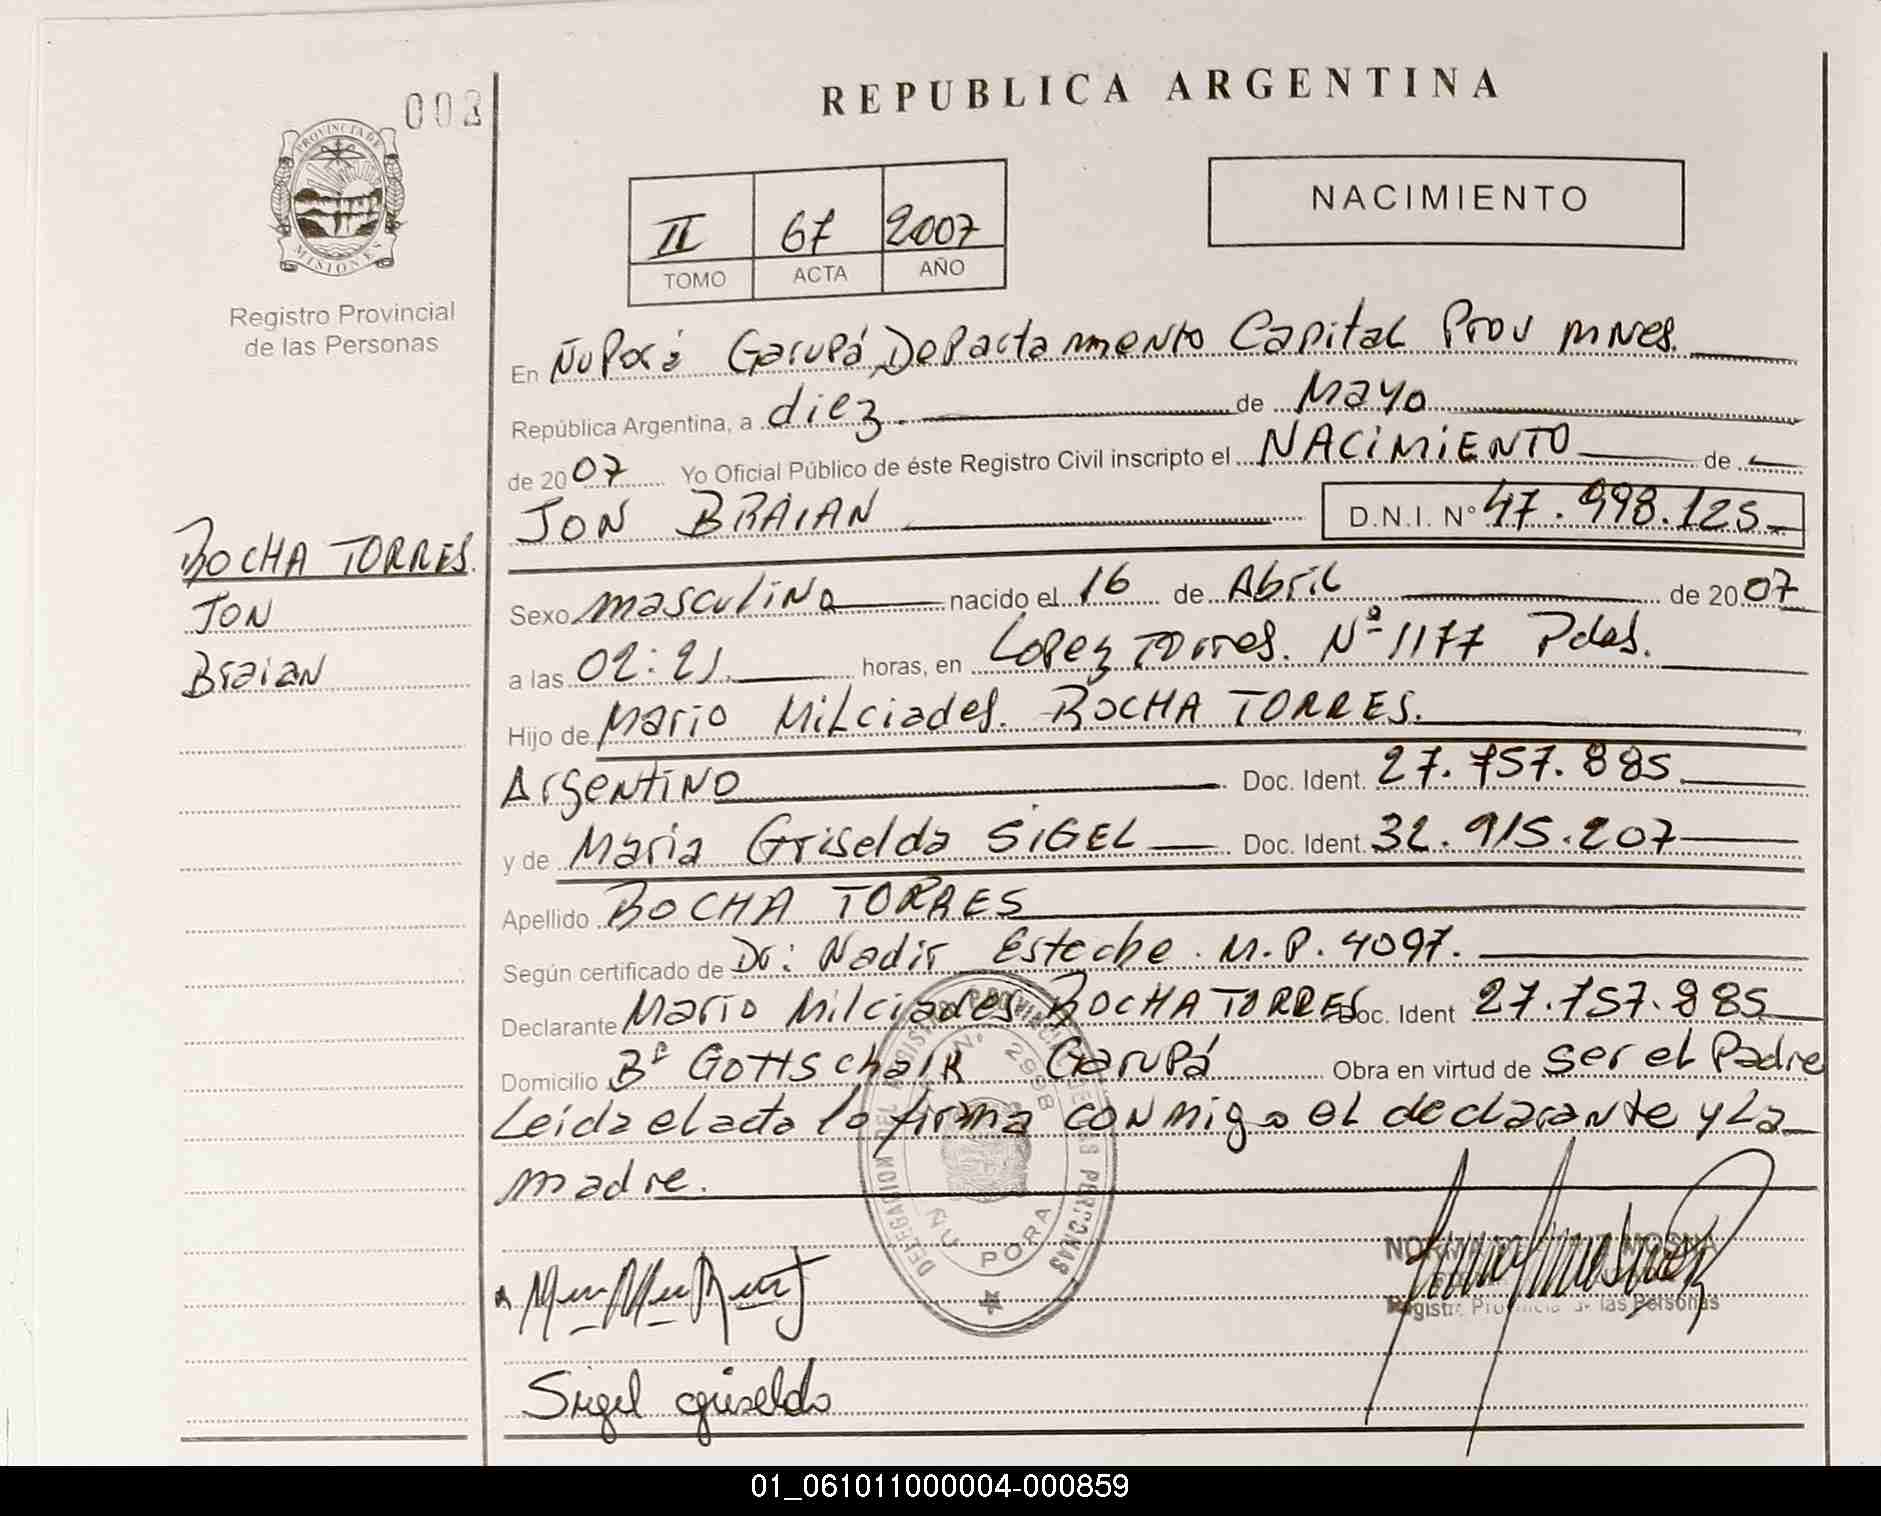 REPUBLICA ARGENTINA
002
PROVINCIA DE
MISIONES
Registro Provincial
de las Personas
NACIMIENTO
II 67 2007
TOMO ACTA AÑO
En Ñu Porá Garupá, Departamento Capital Prov mnes.
República Argentina, a diez de Mayo
de 2007 Yo Oficial Público de éste Registro Civil inscripto el NACIMIENTO de
JON BRAIAN D.N.I. Nº 47.998.125
BOCHA TORRES.
JON
Braian
Sexo masculino nacido el 16 de Abril de 2007
a las 02:21 horas, en Lopez Torres. Nº 1177 Pdas.
Hijo de Mario Milciades. BOCHA TORRES.
Argentino Doc. Ident. 27.757.885
y de Maria Griselda SIGEL Doc. Ident. 32.915.207
Apellido BOCHA TORRES
Según certificado de Dr: Nadir Esteche. M.P. 4097.
Declarante Mario Milciades BOCHA TORRES Doc. Ident 27.757.885
Domicilio Bº Gottschalk Garupá Obra en virtud de ser el Padre
Leída el acta lo firma conmigo el declarante y La
madre.
DELEGACION DEL REGISTRO PROVINCIAL DE LAS PERSONAS
Nº 2998
ÑU PORA
Registro Provincial de las Personas
Sigel griselda
01_061011000004-000859